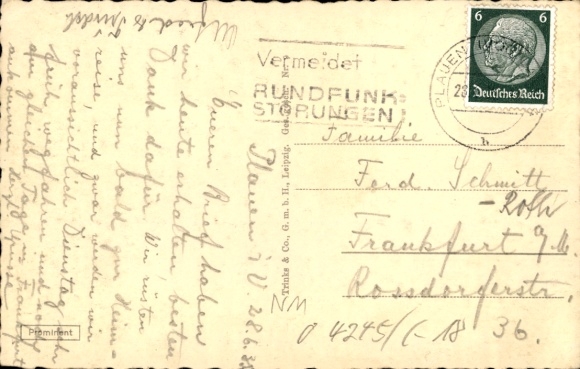 Plauen i/V. 28.6.38
Eueren Brief haben
wir heute erhalten besten
Dank dafür. Wir rüsten
uns nun bald zur Heim-
reise, und zwar werden wir
voraussichtlich Dienstag sehr
früh wegfahren und noch
am gleichen Tage in Frankfurt
ankommen. Herzl. Grüsse
Alfred &
Vermeidet
RUNDFUNK-
STÖRUNGEN!
PLAUEN
28
h
6 6
Deutsches Reich
Familie
Ferd. Schmitt
-Roth
Frankfurt a/M.
Rossdorferstr.
36.
NM
O 4245/C-18
Trinks & Co., G. m. b. H., Leipzig.
Prominent